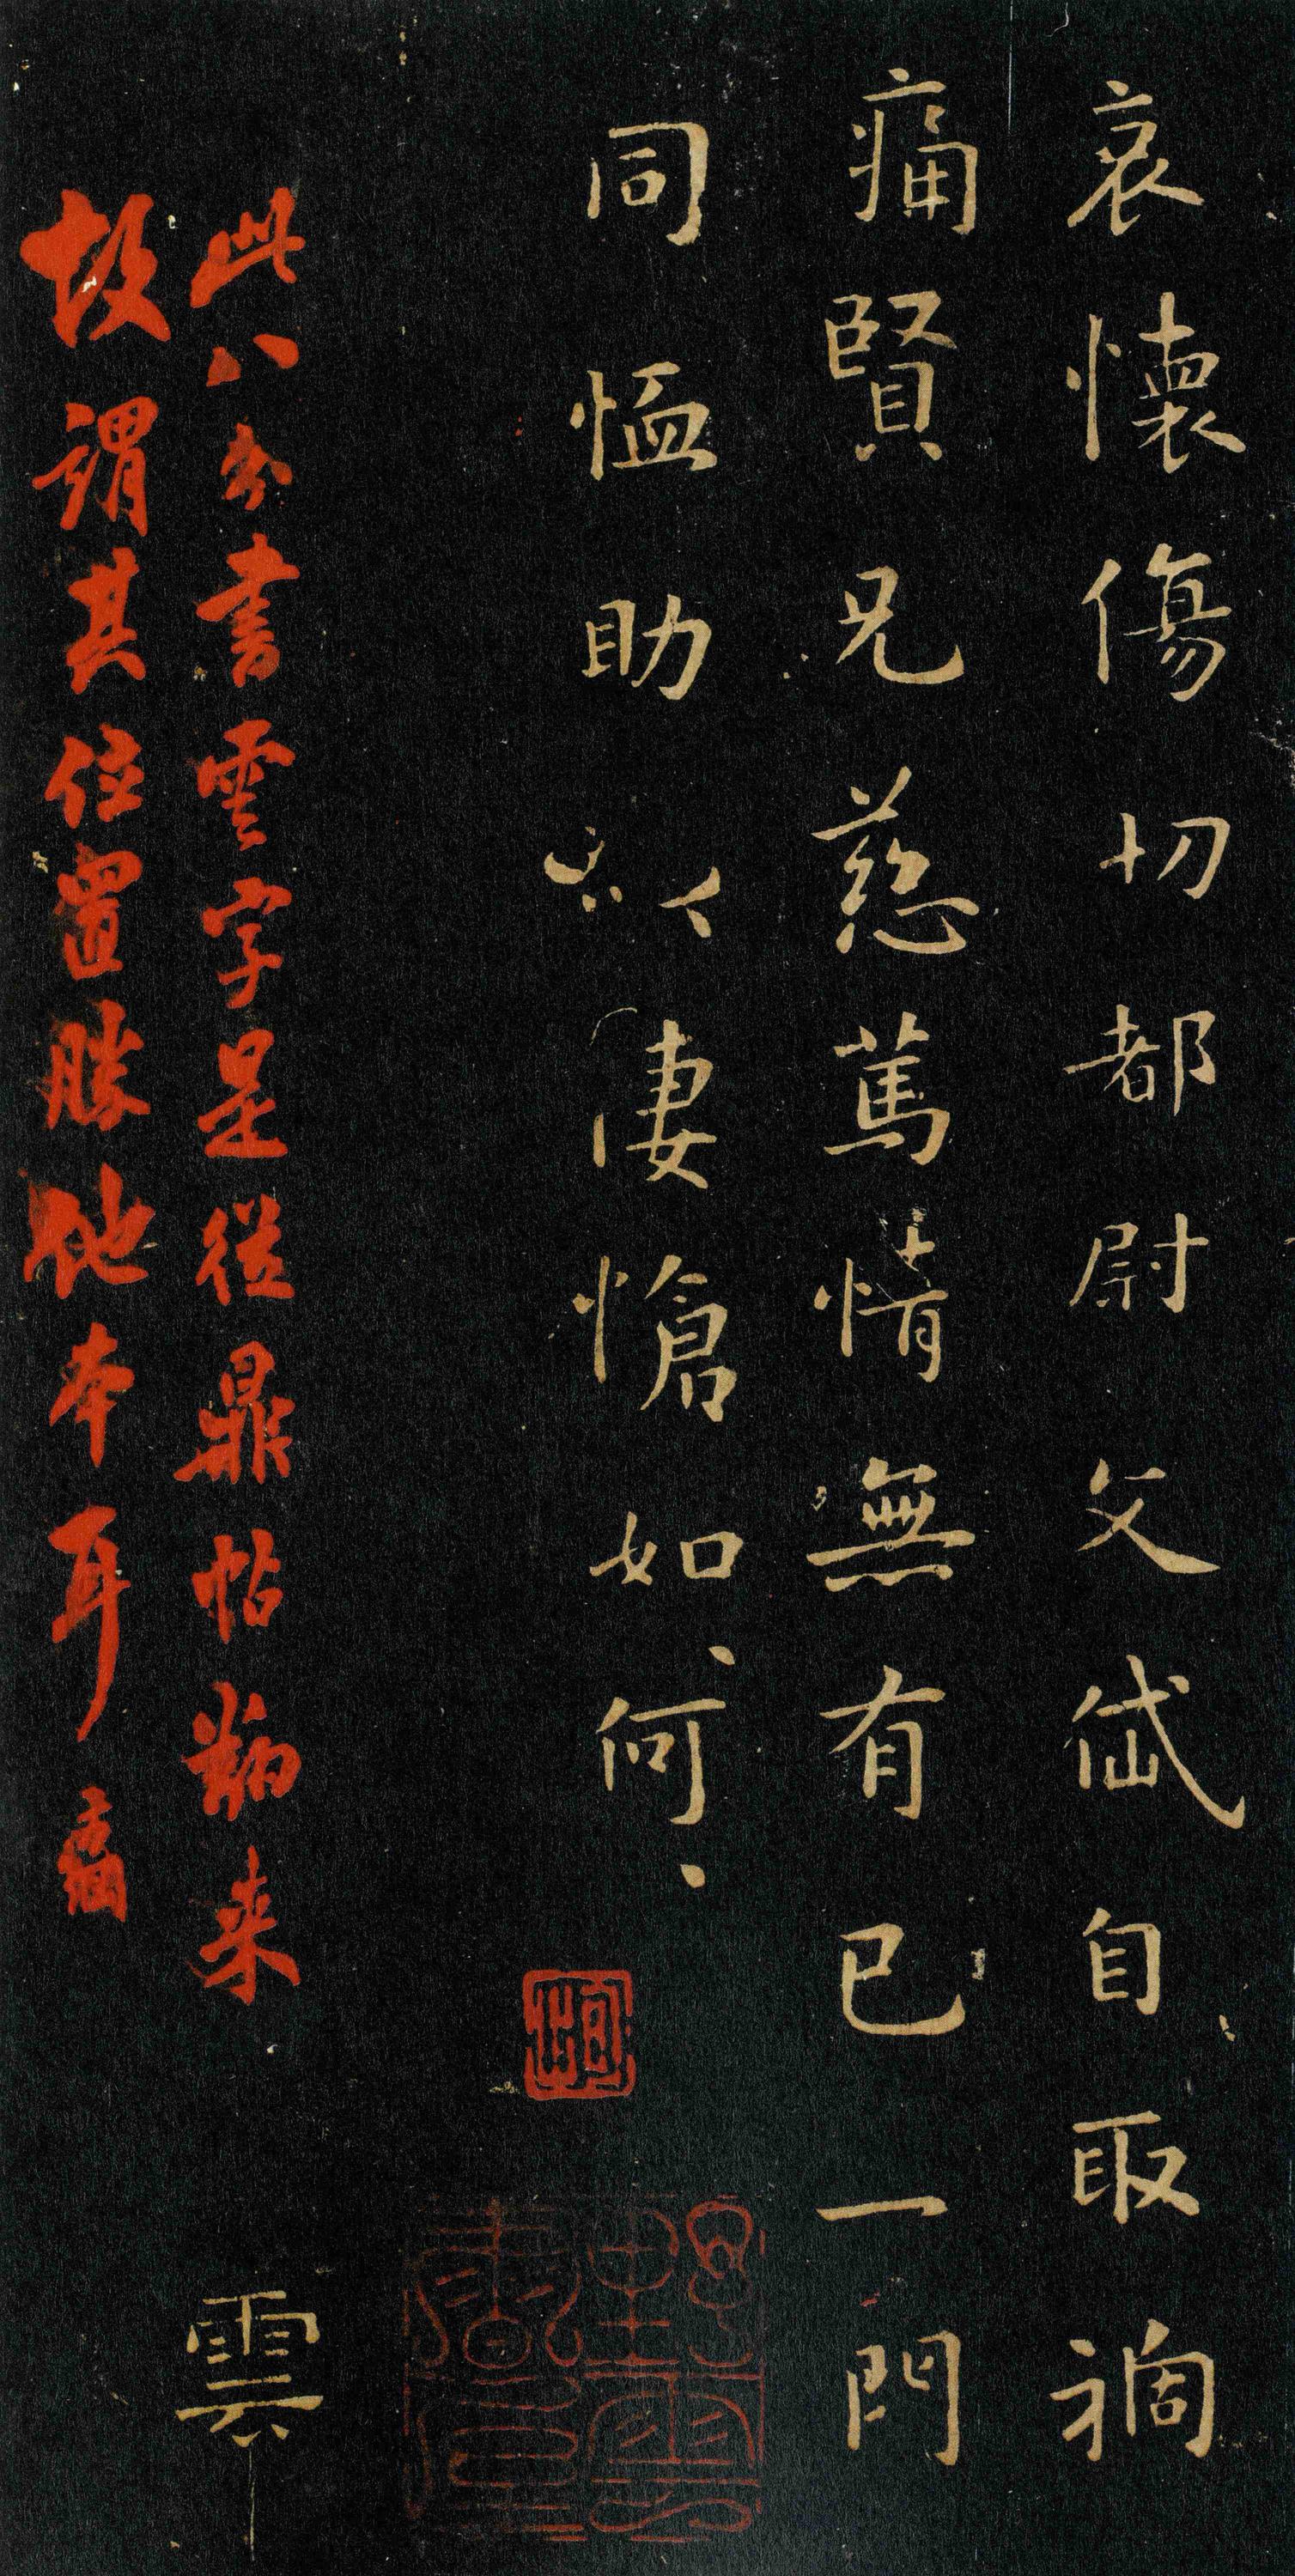 哀懷傷切都尉文岱自取禍
痛賢兄慈篤情無有已一門
同恤助以凄愴如何
此八分書雲字是從鼎帖翻来
故謂其位置勝他本耳
雲